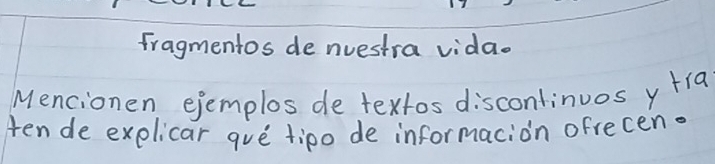 fragmentos de nuestra vida.
Mencionen ejemplos de textos discontinuos y tra
ten de explicar qué tipo de información ofrecen.